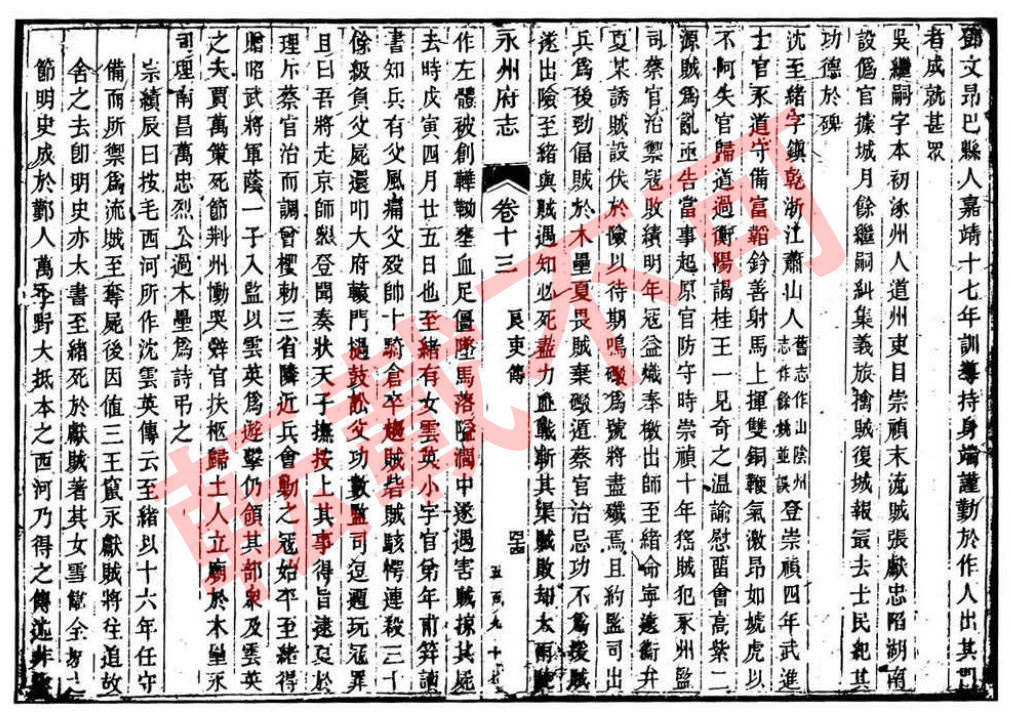 鄧文昂巴縣人嘉靖十七年訓導持身端謹勤於作人出其門
者成就甚眾
吳繼嗣字本初涿州人道州吏目崇禎末流賊張獻忠陷湖南
設偽官據城月餘繼嗣糾集義旅擒賊復城報最去士民紀其
功德於碑
沈至緒字鎮乾浙江蕭山人舊志作山陰州志作餘姚並誤登崇禎四年武進
士官永道守備富韜鈐善射馬上揮雙銅鞭氣激昂如虓虎以
不阿失官歸道過衡陽謁桂王一見奇之溫諭慰留會高紫二
源賊為亂亟告當事起原官防守時崇禎十年徭賊犯永州監
司蔡官治禦寇敗績明年寇益熾奉檄出師至緒命寧遠衛弁
夏某誘賊設伏於險以待期鳴礮為號將盡殲焉且約監司出
兵為後勁偪賊於木壘夏畏賊棄礮遁蔡官治忌功不為援賊
遂出險至緒與賊遇知必死盡力血戰斬其渠賊敗却大雨
永州府志 卷十三 良吏傳
作左體被創韡靿壅血足僵墜馬落隘澗中遂遇害賊掠其屍
去時戊寅四月廿五日也至緒有女雲英小字官弟年甫笄讀
書知兵有父風痛父歿帥十騎倉卒趨賊砦賊駭愕連殺三十
餘級負父屍還叩大府轅門撾鼓訟父功數監司逗遛玩寇罪
且曰吾將走京師撾登聞奏狀天子撫按上其事得旨逮夏於
理斥蔡官治而調曾櫻勅三省隣近兵會勦之寇始平至緒得
贈昭武將軍蔭一子入監以雲英為遊擊仍領其部眾及雲英
之夫賈萬策死節荆州慟哭辭官扶柩歸土人立廟於木壘永
司理南昌萬忠烈公過木壘為詩弔之
宗績辰曰按毛西河所作沈雲英傳云至緒以十六年任守
備而所禦為流城至奪屍後因值三王竄永獻賊將往道故
舍之去即明史亦大書至緒死於獻賊著其女雪讎全
節明史成於鄞人萬季野大抵本之西河乃得之傳